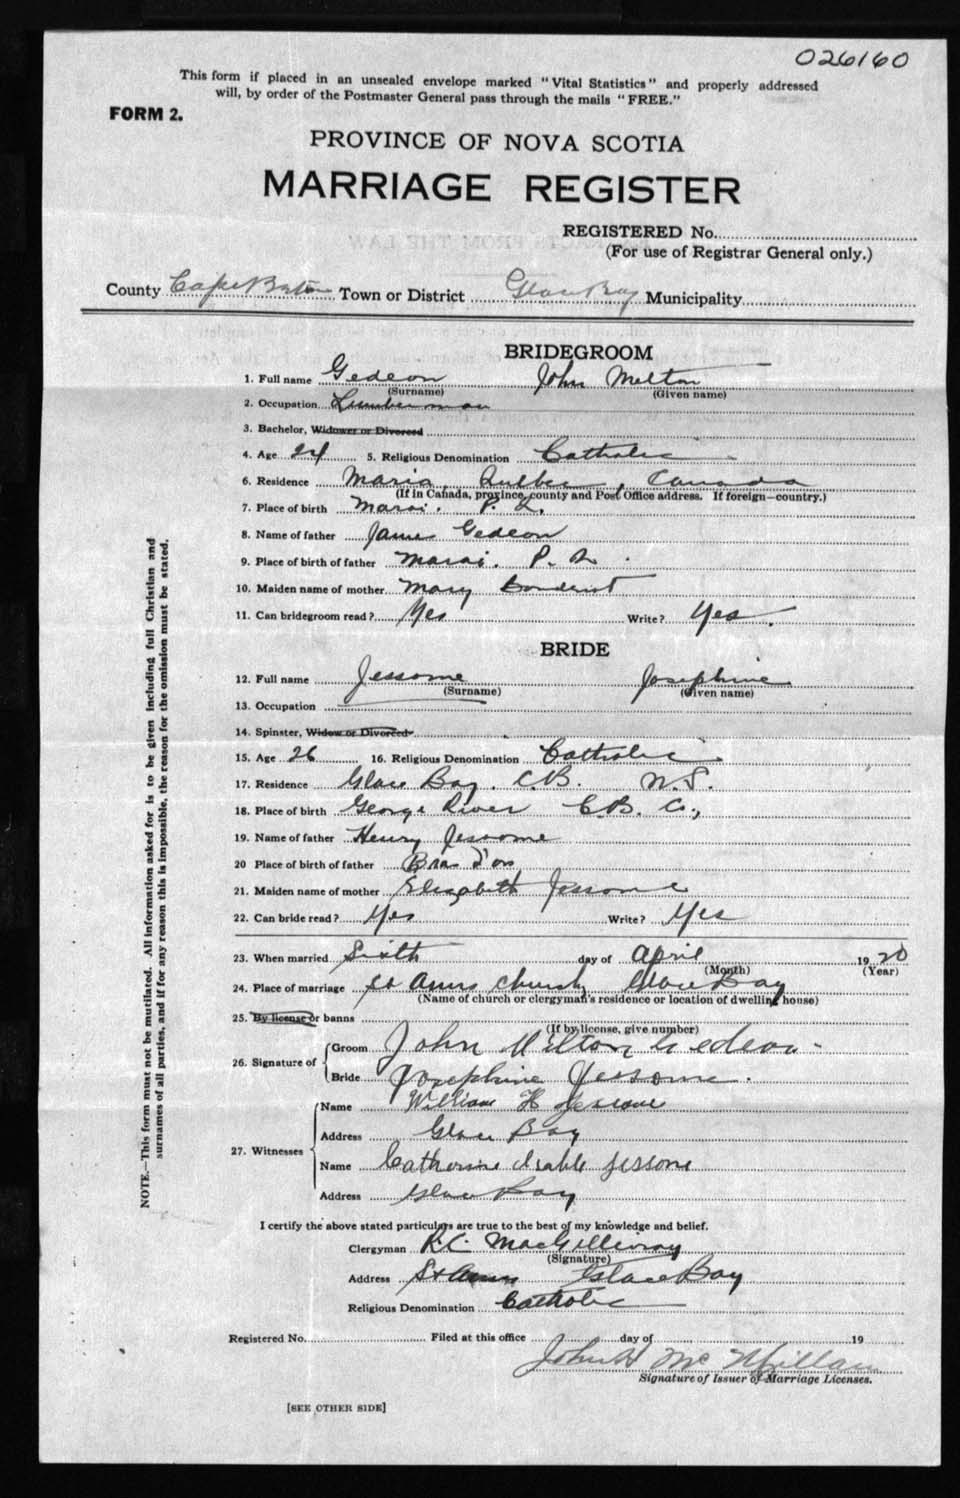 026160
This form if placed in an unsealed envelope marked "Vital Statistics" and properly addressed
will, by order of the Postmaster General pass through the mails "FREE."
FORM 2.
PROVINCE OF NOVA SCOTIA
MARRIAGE REGISTER
REGISTERED No.
(For use of Registrar General only.)
County Cape Breton Town or District Glace Bay Municipality
BRIDEGROOM
1. Full name Gedeon John Melton
(Surname) (Given name)
2. Occupation Lumberman
3. Bachelor, Widower or Divorced
4. Age 24 5. Religious Denomination Catholic
6. Residence Maria, Quebec, Canada
(If in Canada, province, county and Post Office address. If foreign—country.)
7. Place of birth Marai. P. Q.
8. Name of father James Gedeon
9. Place of birth of father Marai. P. Q.
10. Maiden name of mother Mary
11. Can bridegroom read? Yes Write? Yes.
BRIDE
12. Full name Jessome Josephine
(Surname) (Given name)
13. Occupation
14. Spinster, Widow or Divorced
15. Age 26 16. Religious Denomination Catholic
17. Residence Glace Bay. C.B. N.S.
18. Place of birth George River C.B. Co.,
19. Name of father Henry Jessome
20 Place of birth of father Bras d'or
21. Maiden name of mother Elizabeth Jessome
22. Can bride read? Yes Write? Yes
23. When married Sixth day of April 1920
(Month) (Year)
24. Place of marriage St Anns Church Glace Bay
(Name of church or clergyman's residence or location of dwelling house)
25. By license or banns
(If by license, give number)
26. Signature of Groom John Milton Gedeon
Bride Josephine Jessome.
27. Witnesses Name William H Jessome
Address Glace Bay
Name Catherine Jessome
Address Glace Bay
I certify the above stated particulars are true to the best of my knowledge and belief.
Clergyman R.C. MacGillivray
(Signature)
Address St Anns Glace Bay
Religious Denomination Catholic
Registered No. Filed at this office day of 19
John H Mc Millan
Signature of Issuer of Marriage Licenses.
[SEE OTHER SIDE]
NOTE.—This form must not be mutilated. All information asked for is to be given including full Christian and
surnames of all parties, and if for any reason this is impossible, the reason for the omission must be stated.